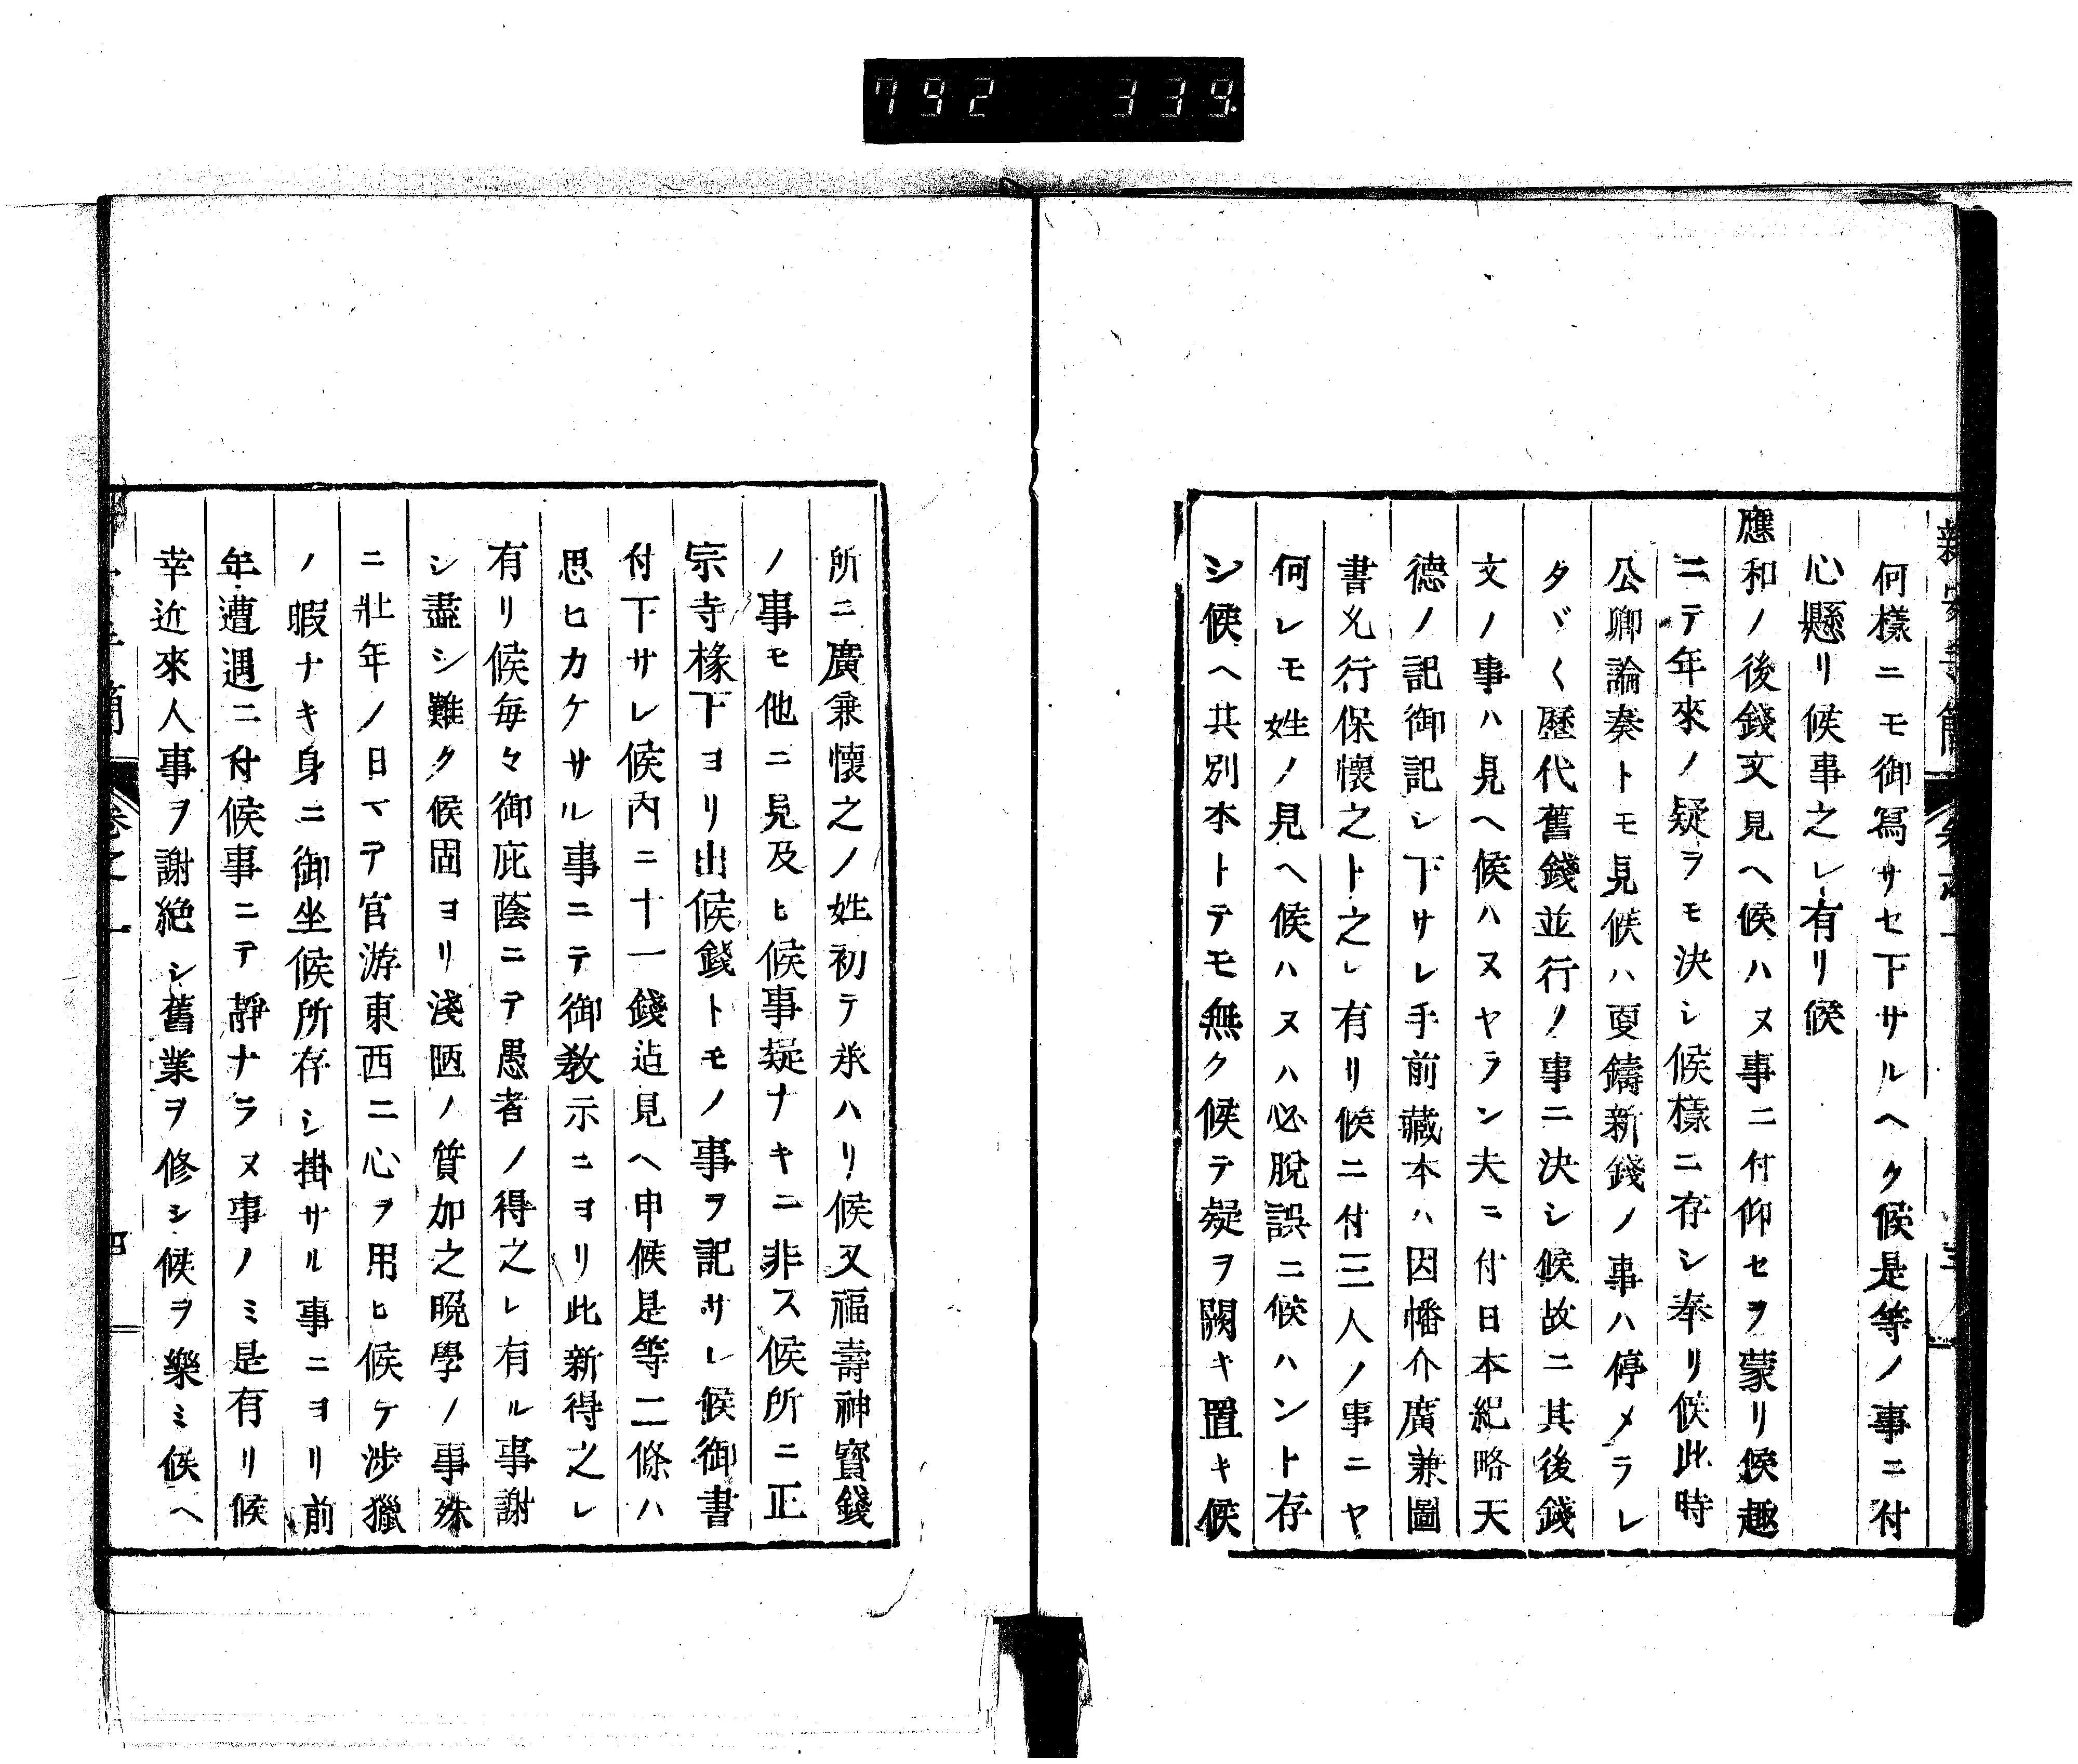 792 339
何樣ニモ御寫サセ下サルヘク候是等ノ事ニ付
心懸リ候事之レ有リ候
應和ノ後錢文見ヘ候ハヌ事ニ付仰セヲ蒙リ候趣
ニテ年來ノ疑ヲモ決シ候樣ニ存シ奉リ候此時
公卿論奏トモ見候ハ更鑄新錢ノ事ハ停メラレ
タヾ〱歷代舊錢並行ノ事ニ決シ候故ニ其後錢
文ノ事ハ見ヘ候ハヌヤラン夫ニ付日本紀略天
德ノ記御記シ下サレ手前藏本ハ因幡介廣兼圖
書允行保懷之ト之レ有リ候ニ付三人ノ事ニヤ
何レモ姓ノ見ヘ候ハヌハ必脫誤ニ候ハント存
シ候ヘ共別本トテモ無ク候テ疑ヲ闕キ置キ候
所ニ廣兼懷之ノ姓初テ承ハリ候又福壽神寶錢
ノ事モ他ニ見及ヒ候事疑ナキニ非ス候所ニ正
宗寺椽下ヨリ出候錢トモノ事ヲ記サレ候御書
付下サレ候內ニ十一錢迠見ヘ申候是等二條ハ
思ヒカケサル事ニテ御教示ニヨリ此新得之レ
有リ候每々御庇蔭ニテ愚者ノ得之レ有ル事謝
シ盡シ難ク候固ヨリ淺陋ノ質加之晚學ノ事殊
ニ壯年ノ日マテ官游東西ニ心ヲ用ヒ候ケ涉獵
ノ暇ナキ身ニ御坐候所存シ掛サル事ニヨリ前
年遭遇ニ付候事ニテ靜ナラヌ事ノミ是有リ候
幸近來人事ヲ謝絕シ舊業ヲ修シ候ヲ樂ミ候ヘ
卷之一
四